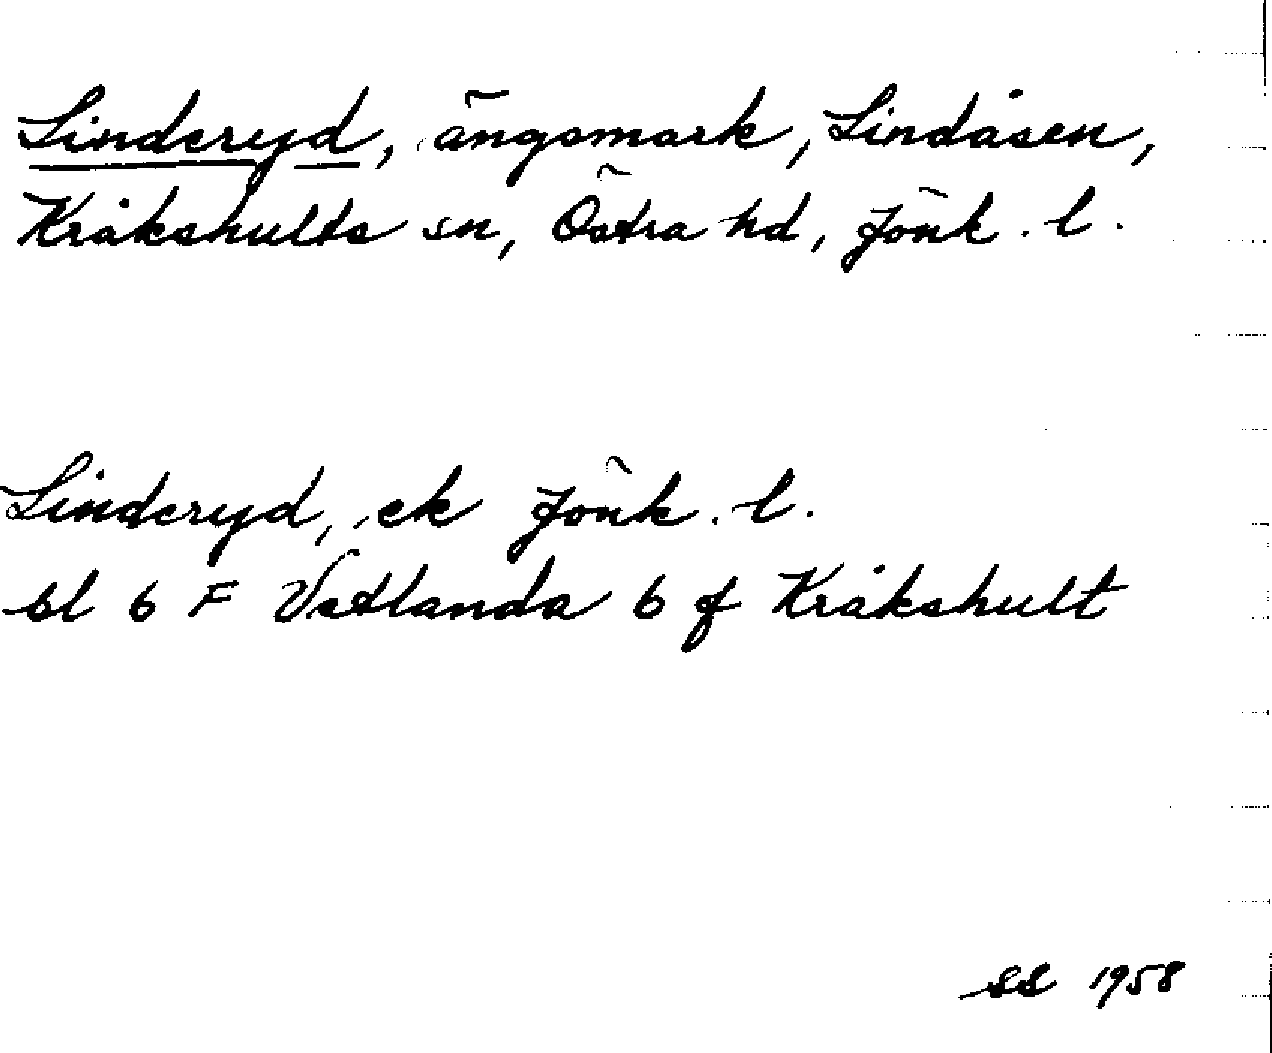 Linderyd, ängsmark, Lindåsen,
Kråkshults sn, Östra hd, Jönk. l.
Linderyd, ek Jönk. l.
bl 6 F Vetlanda 6 f Kråkshult
SS 1958